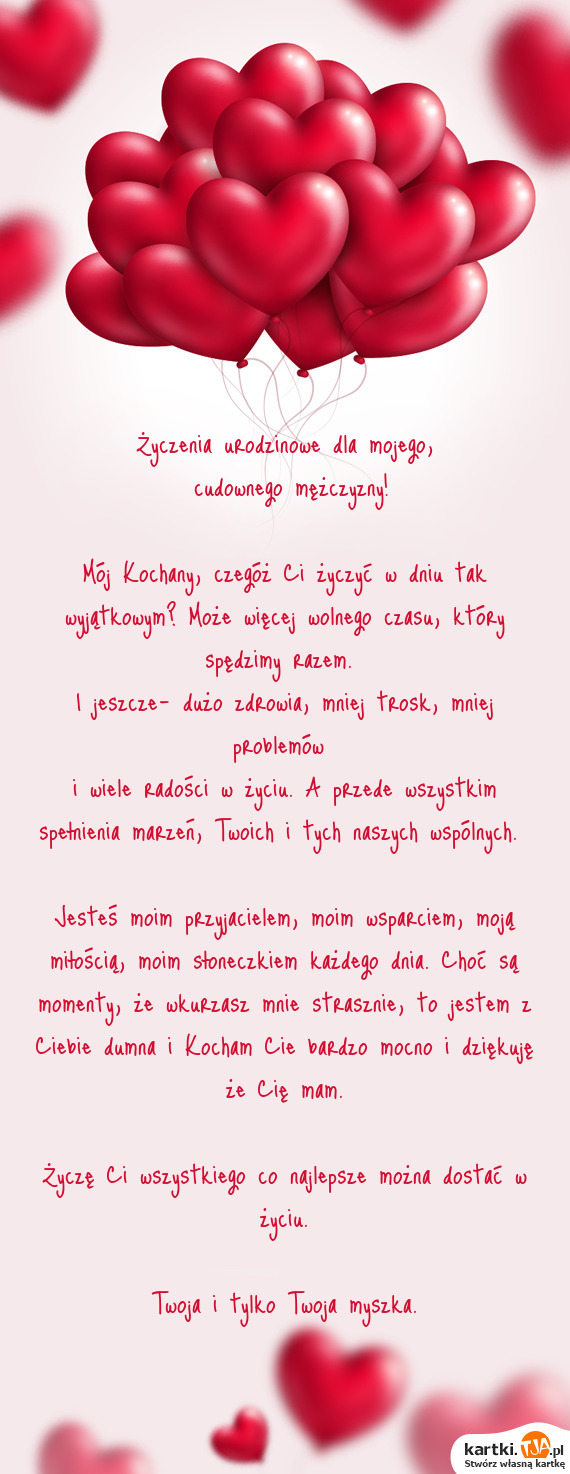 Życzenia urodzinowe dla mojego,
cudownego mężczyzny!
Mój Kochany, czegóż Ci życzyć w dniu tak
wyjątkowym? Może więcej wolnego czasu, który
spędzimy razem.
I jeszcze- dużo zdrowia, mniej trosk, mniej
problemów
i wiele radości w życiu. A przede wszystkim
spełnienia marzeń, Twoich i tych naszych wspólnych.
Jesteś moim przyjacielem, moim wsparciem, moją
miłością, moim słoneczkiem każdego dnia. Choć są
momenty, że wkurzasz mnie strasznie, to jestem z
Ciebie dumna i Kocham Cie bardzo mocno i dziękuję
że Cię mam.
Życzę Ci wszystkiego co najlepsze można dostać w
życiu.
Twoja i tylko Twoja myszka.
kartki.TJA.pl
Stwórz własną kartkę